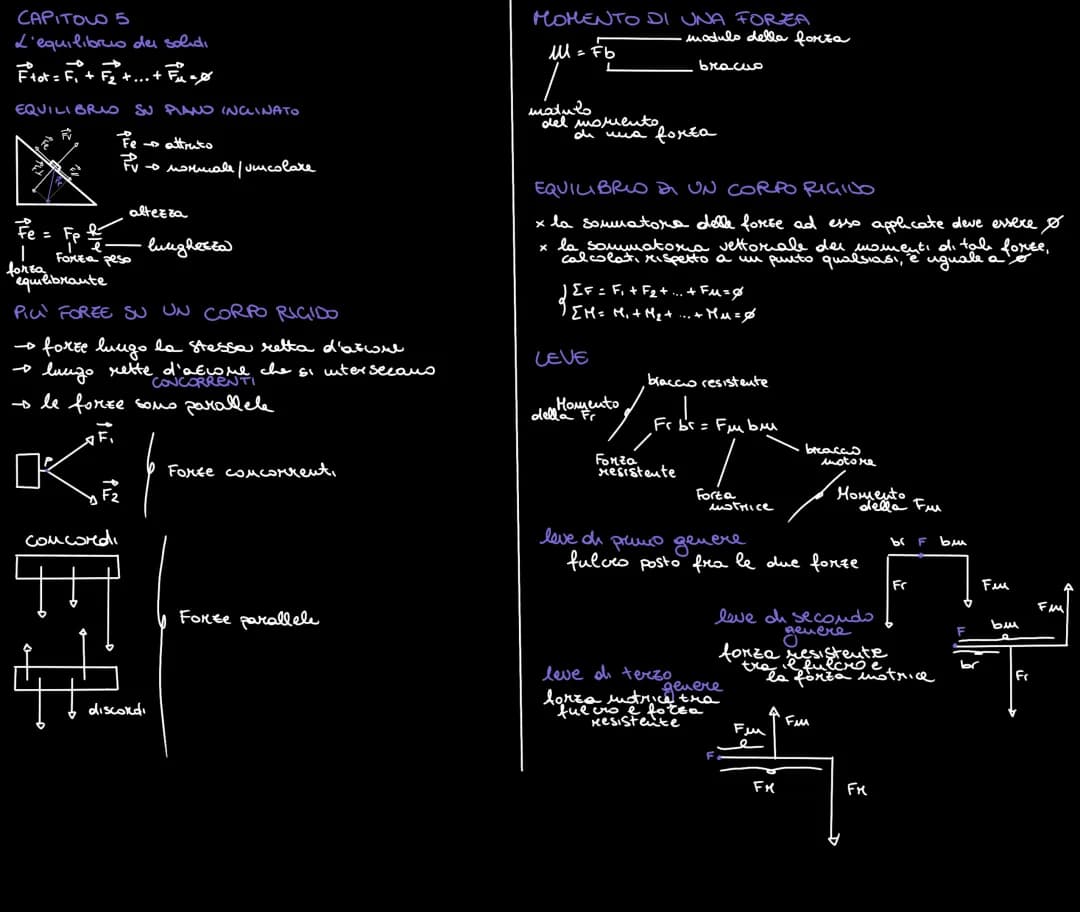 CAPITOLO 5
L'equilibrio dei solidi
F⃗tot = F⃗₁ + F⃗₂ + ... + F⃗n = ∅
EQUILIBRIO SU PIANO INCLINATO
F⃗v
F⃗e → attrito
F⃗v → normale/vincolare
altezza
F⃗e = Fp h/l
lunghezza
Forza peso
forza
equilibrante
PIU' FORZE SU UN CORPO RIGIDO
→ forze lungo la stessa retta d'azione
→ lungo rette d'azione che si intersecano
CONCORRENTI
→ le forze sono parallele
F⃗₁
P
F⃗₂
Forze concorrenti
concordi
Forze parallele
discordi
MOMENTO DI UNA FORZA
modulo della forza
M = Fb
braccio
modulo
del momento
di una forza
EQUILIBRIO DI UN CORPO RIGIDO
× la sommatoria delle forze ad esso applicate deve essere ∅
× la sommatoria vettoriale dei momenti di tali forze,
calcolati rispetto a un punto qualsiasi, è uguale a ∅
{ ΣF = F₁ + F₂ + ... + Fn = ∅
ΣM = M₁ + M₂ + ... + Mn = ∅
LEVE
braccio resistente
Momento
della Fr
Fr br = Fm bm
Forza
resistente
braccio
motore
Forza
motrice
Momento
della Fm
leve di primo genere
fulcro posto fra le due forze
br F bm
Fr
Fm
leve di secondo
genere
forza resistente
tra il fulcro e
la forza motrice
Fm
bm
F
br
Fr
leve di terzo
genere
forza motrice tra
fulcro e forza
resistente
Fm
Fm
F
Fr
Fr